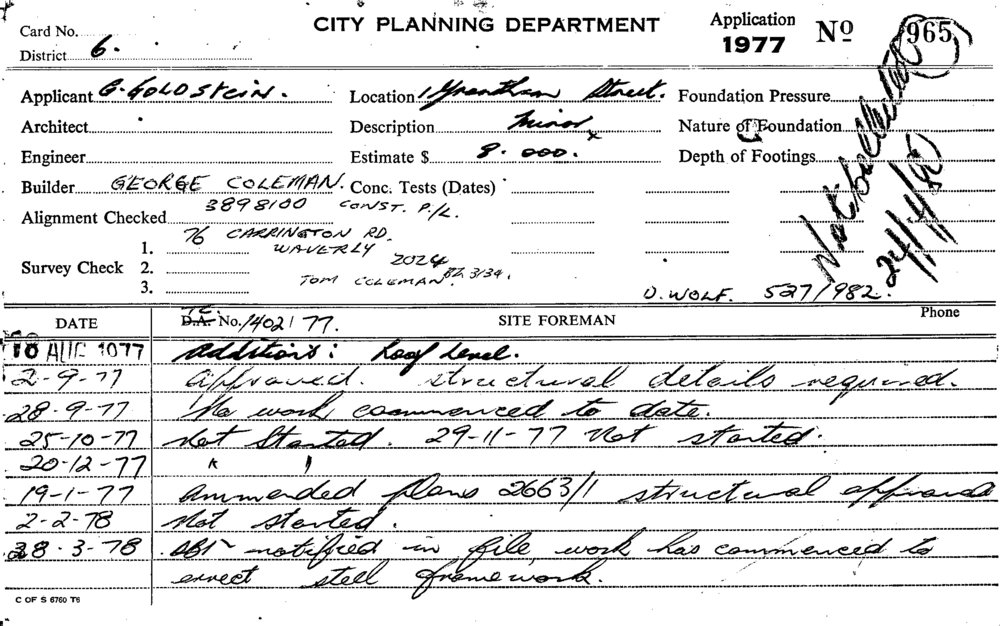 CITY PLANNING DEPARTMENT
Card No.
District 6.
Application 1977 No 965
Applicant G. GOLDSTEIN.
Location 1 Grantham Street.
Foundation Pressure
Architect
Description Minor
Nature of Foundation
Engineer
Estimate $ 8.000.
Depth of Footings
Builder GEORGE COLEMAN.
Conc. Tests (Dates)
3898100 CONST. P/L.
Alignment Checked
76 CARRINGTON RD.
1.
WAVERLY
Survey Check 2.
2024
3.
TOM COLEMAN BL 3134.
Not
24/4/80
D. WOLF. 527/982.
DATE
D.A. No. 1402/77.
SITE FOREMAN
Phone
10 AUG 1977 Additions: Roof Level.
2-9-77 Approved. structural details required.
28-9-77 No work commenced to date.
25-10-77 Not Started. 29-11-77 Not started.
20-12-77 " "
19-1-77 Ammended plans 2663/1 structural approved
2-2-78 Not started.
28-3-78 notified in file work has commenced to
errect steel framework.
C OF S 6760 T6